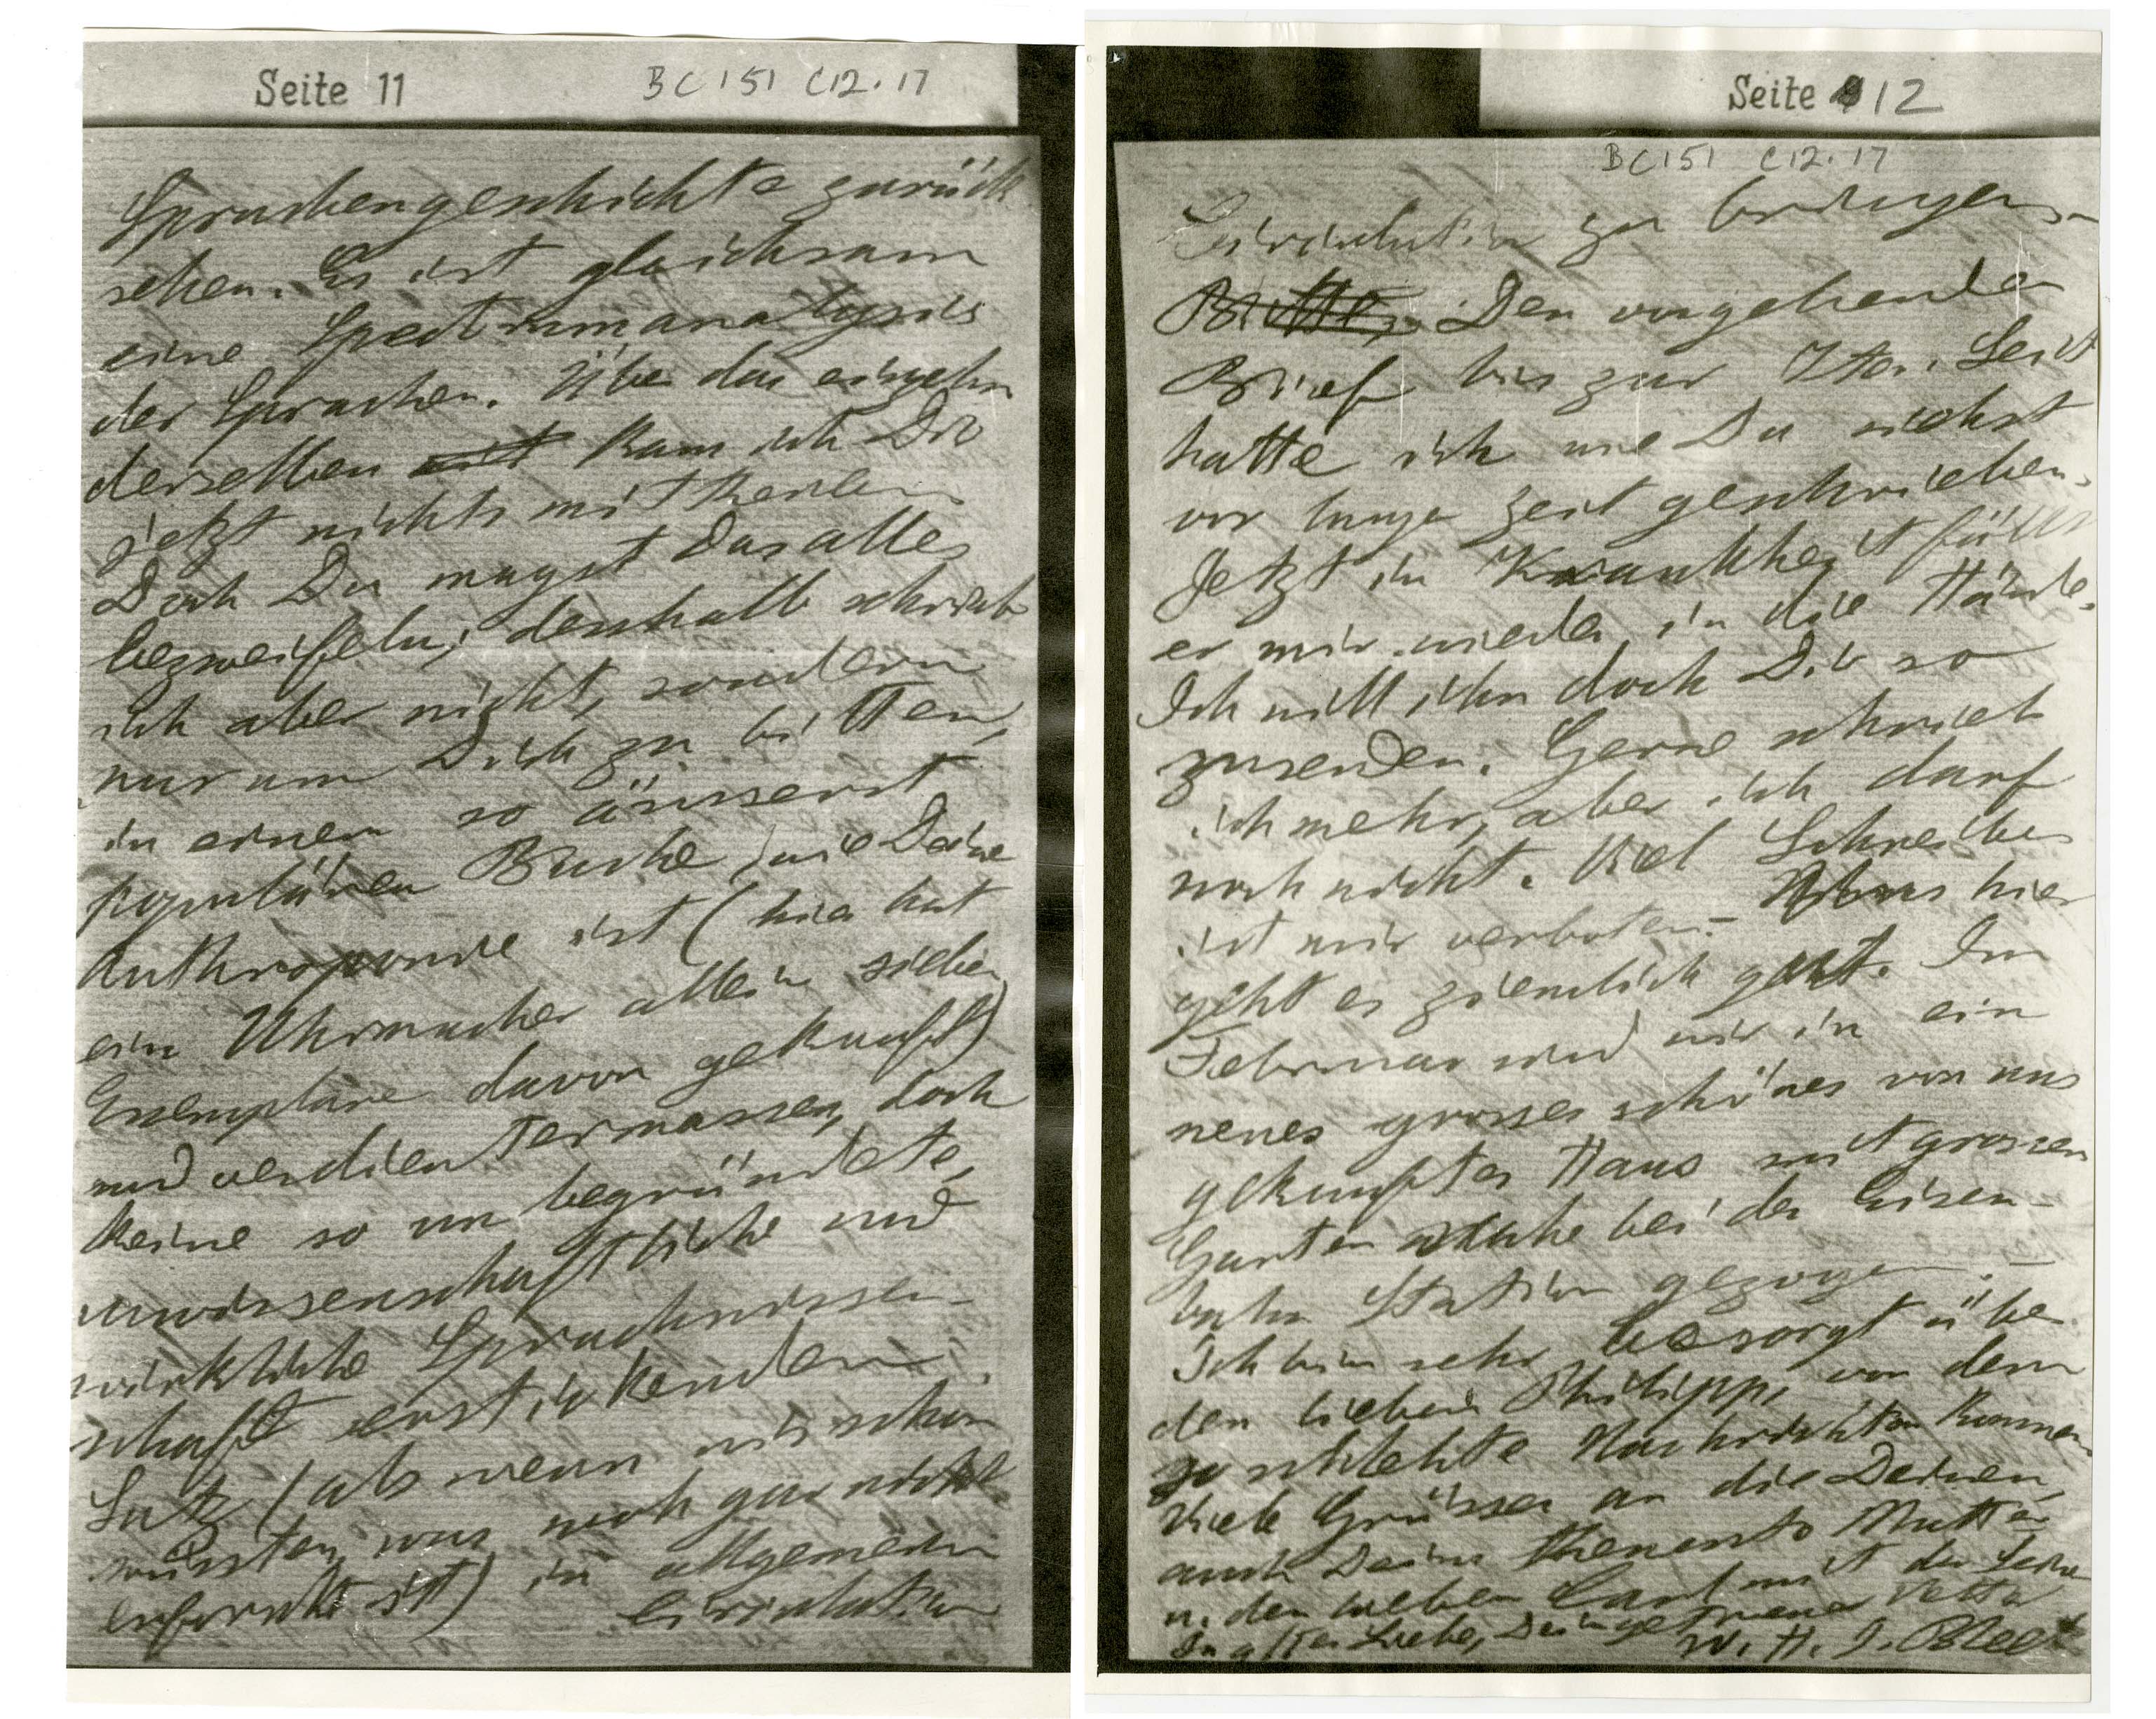 Seite 11
BC 151 C12.17
Sprachengeschichte zurück
sehen. Es ist gleichsam
eine Spectrumanalysis
der Sprachen. Über das
derselben kann ich Dir
jetzt nichts mittheilen
Doch Du magst das alles
bezweifeln; desshalb schrieb
ich aber nicht, sondern
nur um Dich zu bitten,
in einem so äusserst
populären Buche, wie Deine
ist (hier hat
ein Uhrmacher allein sieben
Exemplare davon gekauft)
und verdientermassen, doch
keine so unbegründete,
unwissenschaftliche und
wirkliche Sprachwissen-
schaft erstickenden
Satz (als wenn wir schon
wüssten, was noch gar nicht
erforscht ist) in allgemeine
Circulation
Seite 12
BC 151 C12.17
Circulation zu bringen.
Bitte, Den vorgehenden
Brief bis zur 7ten Seite
hatte ich wie Du siehst
vor langer Zeit geschrieben.
Jetzt in Krankheit fällt
er mir wieder in die Hände.
Ich will ihn doch Dir so
zusenden. Gerne schrieb
ich mehr, aber ich darf
noch nicht. Viel Schreiben
ist mir verboten. – Uns hier
geht es ziemlich gut. Im
Februar sind wir in ein
neues grosses schönes von uns
gekauftes Haus mit grossen
Garten nahe bei der Eisen-
bahn Station gezogen. –
Ich bin sehr besorgt über
den lieben Philipp, von dem
so schlechte Nachrichten kommen
Viele Grüsse an die Deinen,
auch Deine Mutter
u. den lieben Carl mit der Seinen
In alter Liebe, Dein getreuer Vetter
W. H. I. Bleek